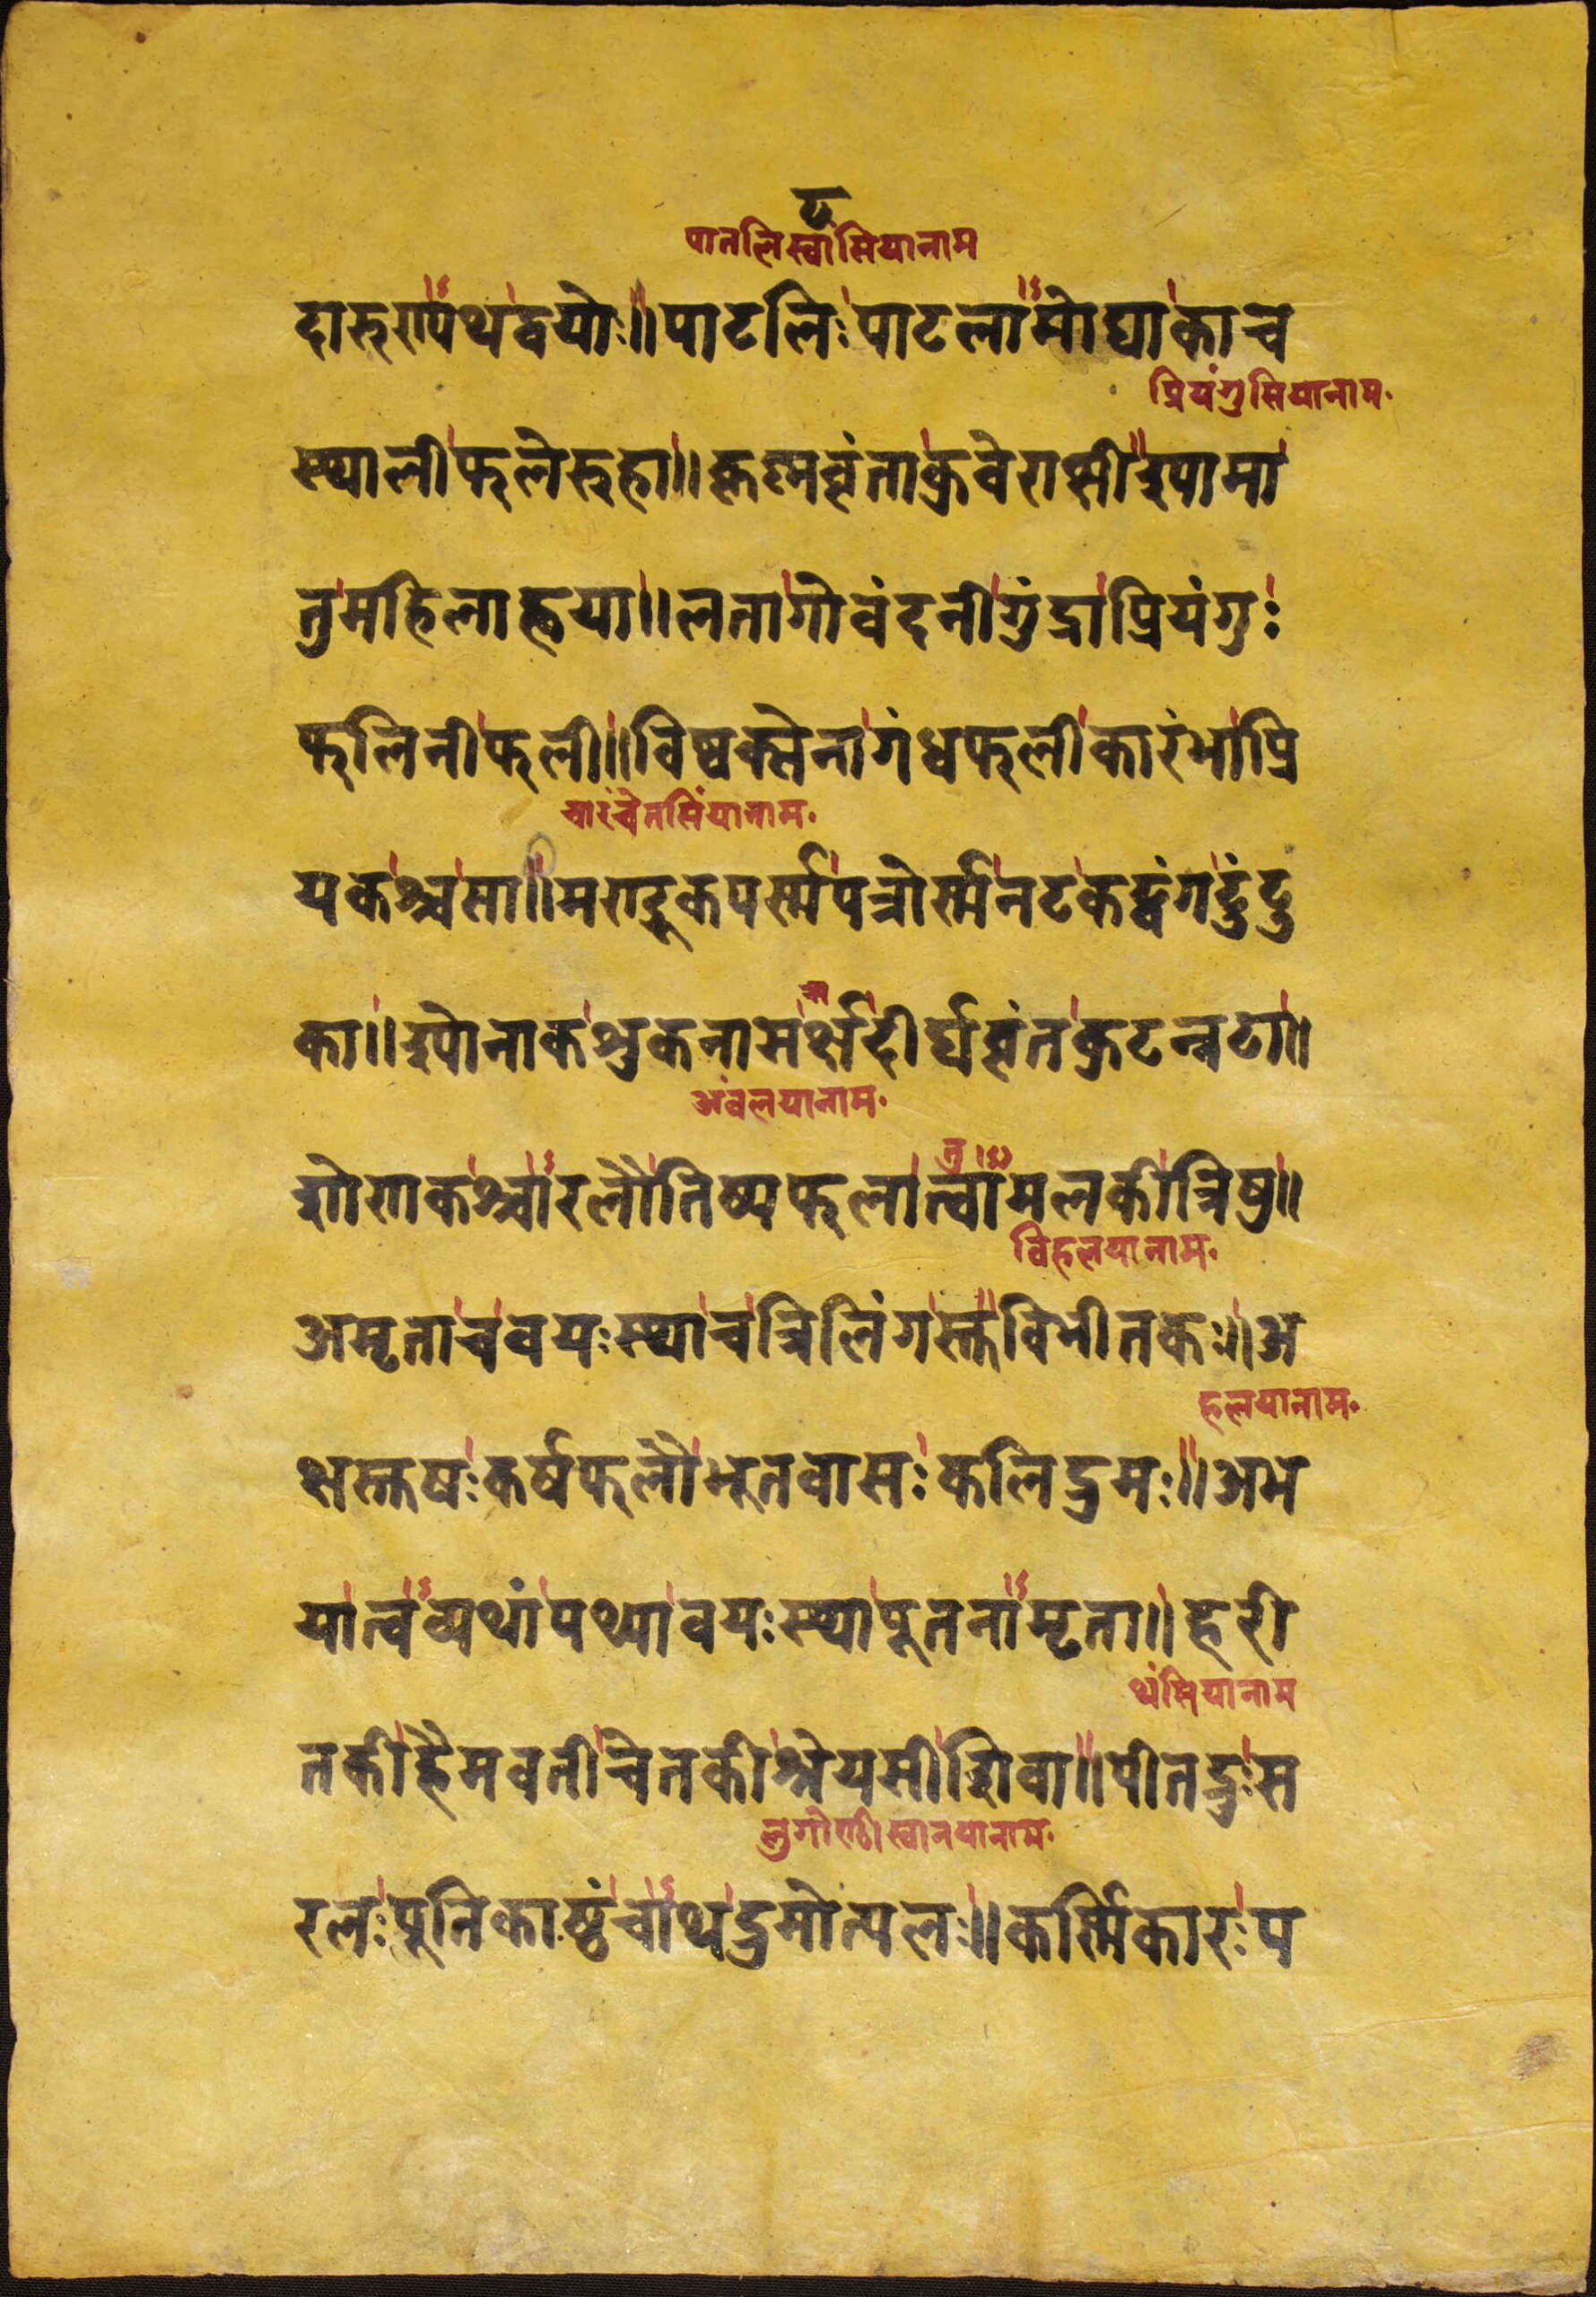 पातलिस्वाँसियानाम
दारुण्यपथद्वयोः॥पाटलिःपाटलामोघाकाच
प्रियंगुसियानाम॰
स्थालीफलेरुहा॥कृष्णवृंताकुवेराक्षीश्यामा
तुमहिलाह्वया॥लतागोवंदनीगुंद्राप्रियंगुः
फलिनीफली॥विष्वक्सेनागंधफलीकारंभाप्रि
चारंचेतसिंयानाम॰
यकश्चसा॥मण्डूकपर्स्मपत्रोर्स्मनटकद्वंगटुंटु
का॥श्योनाकशुकनासर्क्षदीर्घवृंतकुटन्नटा॥
अंवलयानाम॰
शोणकश्चारलौतिष्यफलात्वामलकीत्रिषु॥
विहलयानाम॰
अमृताचवयःस्थाचत्रिलिंगस्तुविभीतकः॥अ
हलयानाम॰
क्षस्तुषःकर्षफलौभूतवासःकलिद्रुमः॥अभ
यात्वव्यथांपथ्यावयःस्थापूतनामृता॥हरी
थंसियानाम
तकीहैमवतीचेतकीश्रेयसीशिवा॥पीतद्रुःस
स्वानयानाम॰
रलःपूतिकाष्ठंचाथद्रुमोत्पलः॥कर्स्मिकारःप